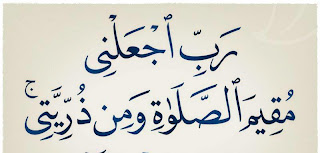 رَبِّ ٱجْعَلْنِى
مُقِيمَ ٱلصَّلَوٰةِ وَمِن ذُرِّيَّتِىۚ